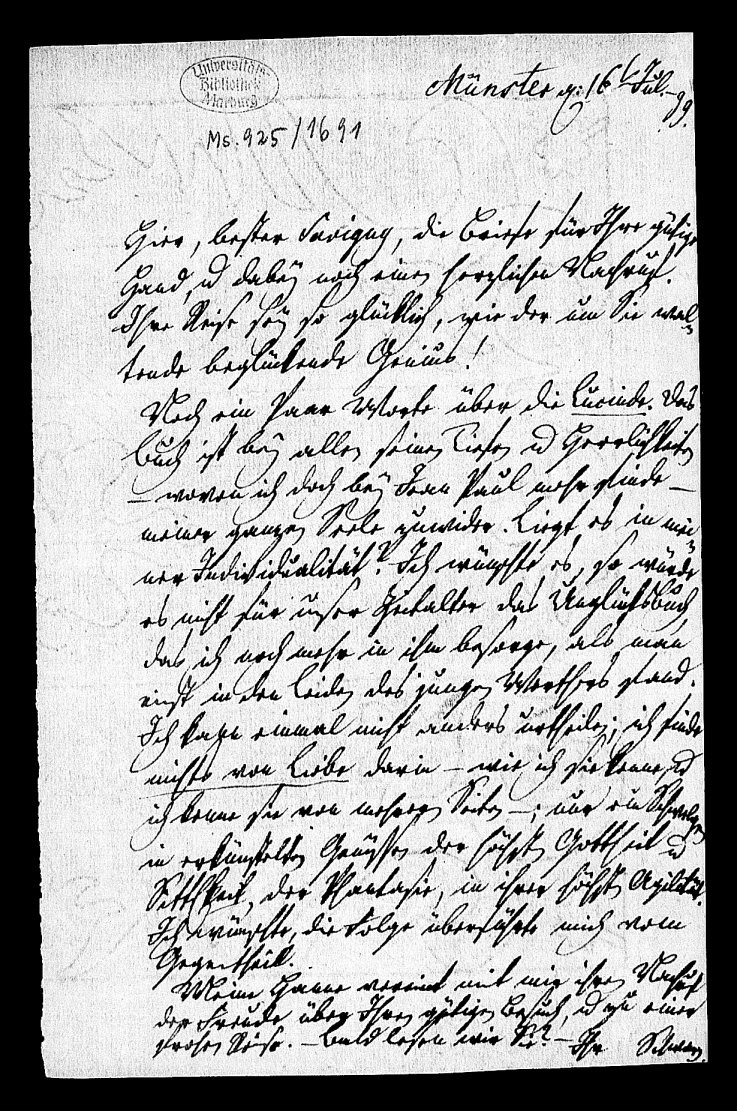 Universitäts-
Bibliothek
Marburg
Münster d. 16t Jul. 99.
Ms. 925/1691
Hier, bester Savigny, die Briefe für Ihre gütige
Hand, u dabey noch einen herzlichen Nachruf.
Ihre Reise sey so glücklich, wie der um Sie wal-
tende beglückende Genius!
Noch ein Paar Worte über die Lucinde. Das
Buch ist bey allen seinen Tiefen u Herrlichkeiten
– wovon ich doch bey Jean Paul mehr finde –
meiner ganzen Seele zuwider. Liegt es in mei-
ner Individualität? Ich wünschte es, so würde
es nicht für unser Zeitalter das Unglücksbuch,
das ich noch mehr in ihm besorge, als man
einst in den Leiden des jungen Werthers fand.
Ich kann einmal nicht anders urtheilen; ich finde
nichts von Liebe darin – wie ich sie kenne, u
ich kenne sie von mehrern Seiten –; nur ein Schwelgen
in erkünstelten Genüssen der höchsten Gottheit u
der Phantasie, in ihrer höchsten Agilität.
Ich wünschte, die Folge überführte mich vom
Gegentheil.
Meine Hanne vereint mit mir ihren Nachruf
der Freude über Ihren gütigen Besuch, u zu einer
frohen Reise. – Bald lesen wir Sie? – Ihr Schwarz.